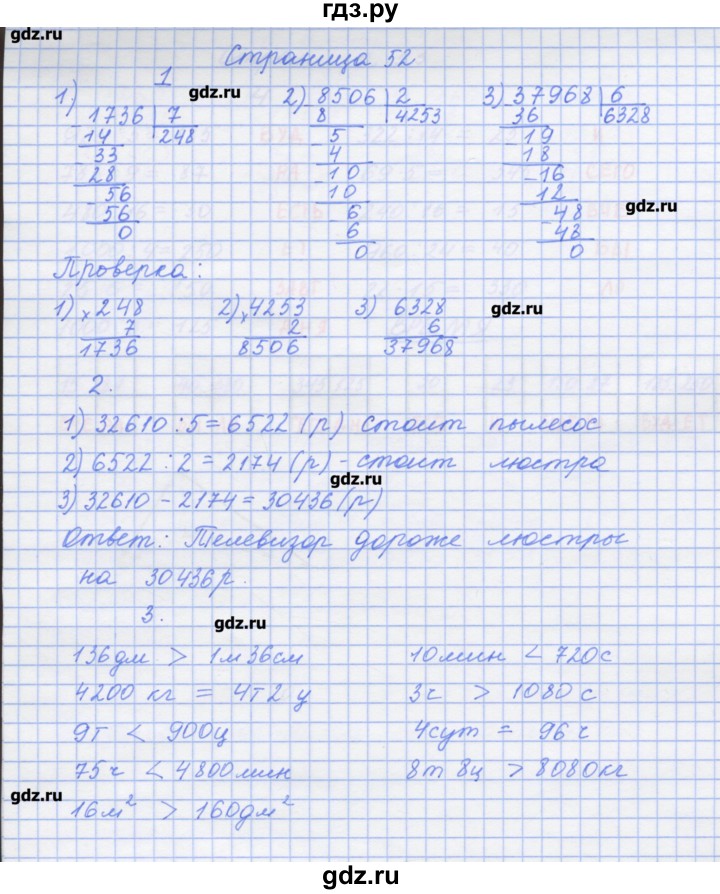 гдз.ру
gdz.ru
Страница 52
1
gdz.ru
1) 1736 | 7
14 248
33
28
56
56
0
2) 8506 | 2
8 4253
5
4
10
10
6
6
0
3) 37968 | 6
36 6328
19
18
16
12
48
48
0
gdz.ru
Проверка:
1) × 248
7
1736
2) × 4253
2
8506
3) 6328
6
37968
gdz.ru
2.
1) 32610 : 5 = 6522 (р) стоит пылесос
2) 6522 : 2 = 2174 (р) - стоит люстра
gdz.ru
3) 32610 - 2174 = 30436 (р)
Ответ: Телевизор дороже люстры
gdz.ru
на 30436 р.
3.
gdz.ru
136 дм > 1 м 36 см 10 мин < 720 с
4200 кг = 4 т 2 ц 3 ч > 1080 с
9 т < 900 ц 4 сут = 96 ч
75 ч < 4800 мин 8 т 8 ц > 8080 кг
gdz.ru gdz.ru
16 м² > 160 дм²
gdz.ru